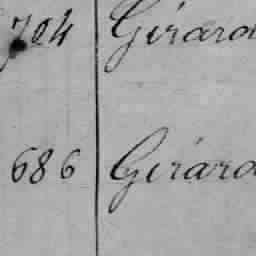 704 Girard
686 Girard